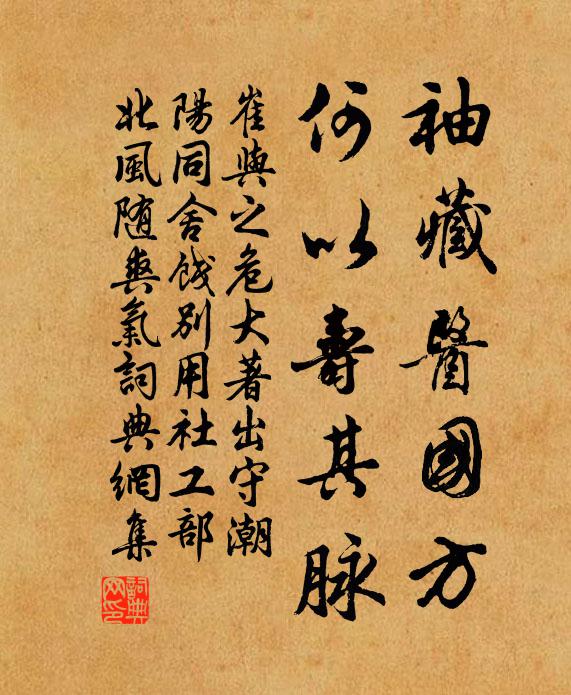 袖藏醫國方
何以壽其脉
崔與之危大著出守潮
陽同舍餞別用社工部
北風随爽氣詞典網集
詞典
网印